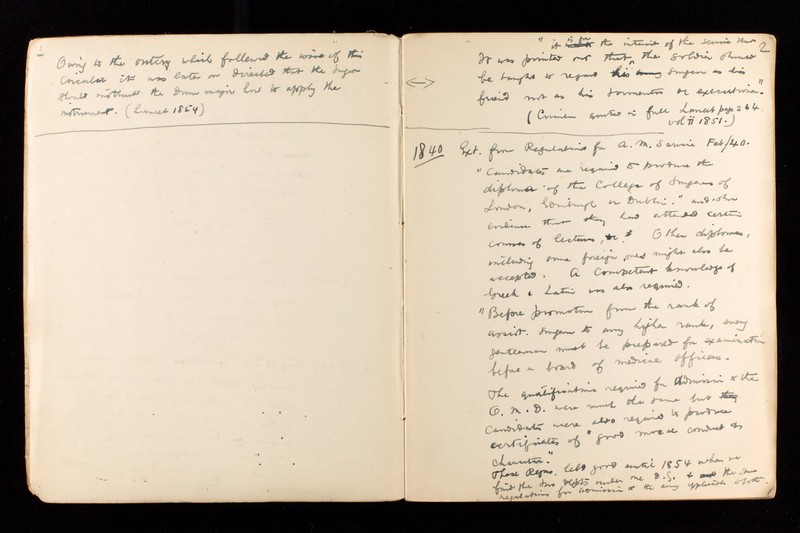 1
Owing to the outcry which followed the issue of this
Circular it was later on directed that the Surgeon
should instruct the Drum major how to apply the
instrument. (Lancet 1854)
2
" it is for the interest of the service that
It was pointed out that the soldier should
be taught to regard his Surgeon as his
friend not as his tormentor or executioner."
( Circular quoted in full Lancet page 264
vol ii 1851.)
1840 Ext. from Regulations for A. M. Service Feb/40.
"Candidates are required to produce the
diploma of the College of Surgeons of
London, Edinburgh or Dublin." and other
evidence that they had attended certain
courses of lectures, &c. Other diplomas,
including some foreign ones might also be
accepted. A Competent knowledge of
Greek & Latin was also required.
"Before promotion from the rank of
assist. Surgeon to any higher rank, every
gentleman must be prepared for examination
before a board of medical officers.
The qualifications required for Admission to the
O. M. D. were much the same but
candidates were also required to produce
certificates of "good moral conduct &
character."
These Regns. held good until 1854 when we
find the two Depts under one D.G. & the same
regulations for admission to the army applicable to both.